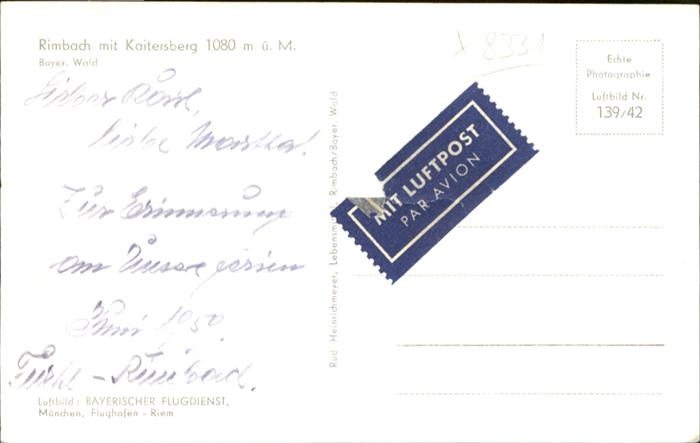 Rimbach mit Kaitersberg 1080 m ü. M.
Bayer. Wald
Lieber Karl,
liebe Martha!
Zur Erinnerung
an Unsere Ferien
Juni 1950
Furth - Rimbach.
Luftbild: BAYERISCHER FLUGDIENST,
München, Flughafen - Riem
Rud. Heinrichmeyer, Lebensm Rimbach/Bayer. Wald
8331
MIT LUFTPOST
PAR AVION
Echte
Photographie
Luftbild Nr.
139/42